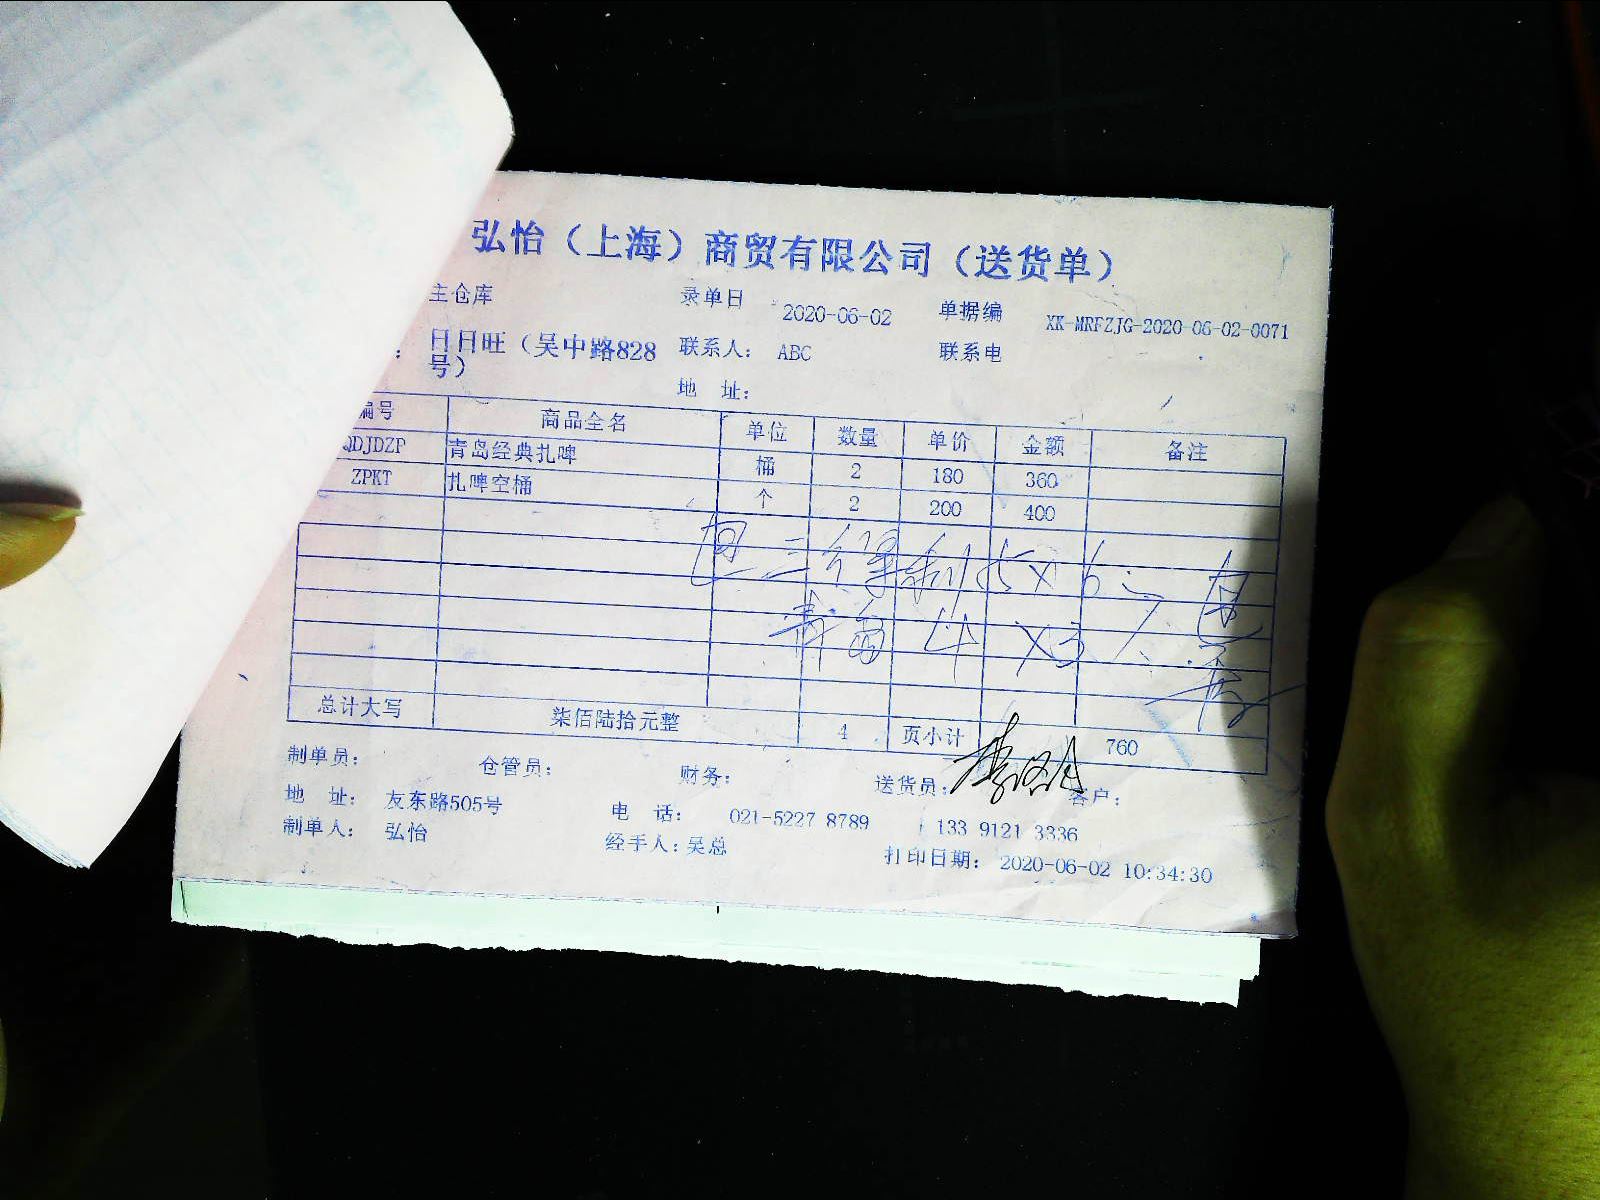 弘怡（上海）商贸有限公司（送货单）
主仓库 录单日 2020-06-02 单据编 XK-MRFZJG-2020-06-02-0071
：日日旺（吴中路828号） 联系人： ABC 联系电
地 址：
编号 商品全名 单位 数量 单价 金额 备注
QDJDZP 青岛经典扎啤 桶 2 180 360
ZPKT 扎啤空桶 个 2 200 400
回三得利 15 X 6
青岛 4 X3
总计大写 柒佰陆拾元整 4 页小计 760
制单员： 仓管员： 财务： 送货员： 客户：
地 址： 友东路505号 电 话： 021-5227 8789 133 9121 3336
制单人： 弘怡 经手人：吴总 打印日期： 2020-06-02 10:34:30